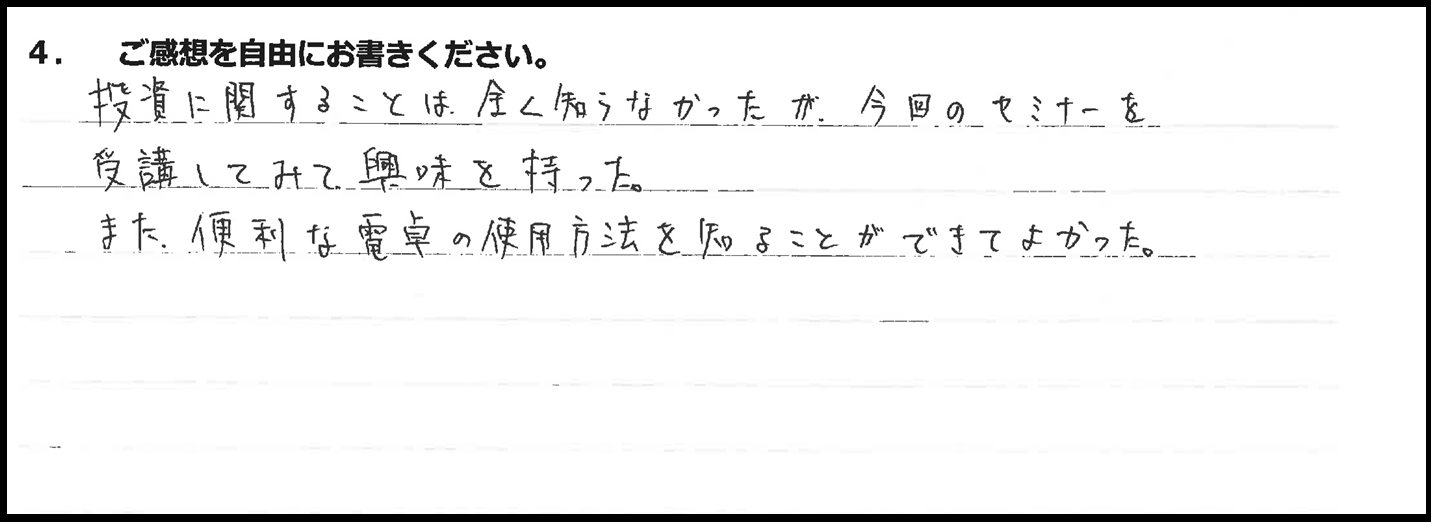 4. ご感想を自由にお書きください。
投資に関することは、全く知らなかったが、今回のセミナーを
受講してみて、興味を持った。
また、便利な電卓の使用方法を知ることができてよかった。